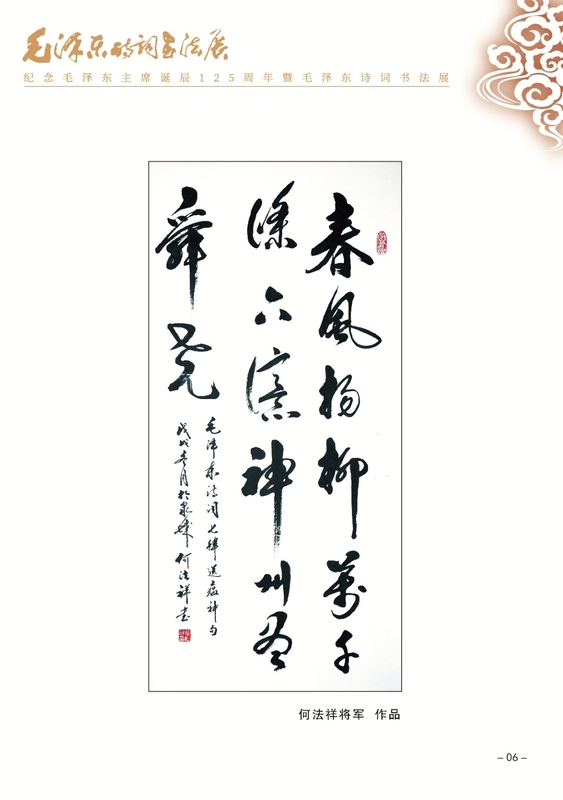 毛泽东诗词书法展
纪念毛泽东主席诞辰125周年暨毛泽东诗词书法展
春风杨柳万千
條六億神州尽
舜尧
毛泽东诗词七律送瘟神句
戊戌春月於京城何法祥书
何法祥将军 作品
–06–